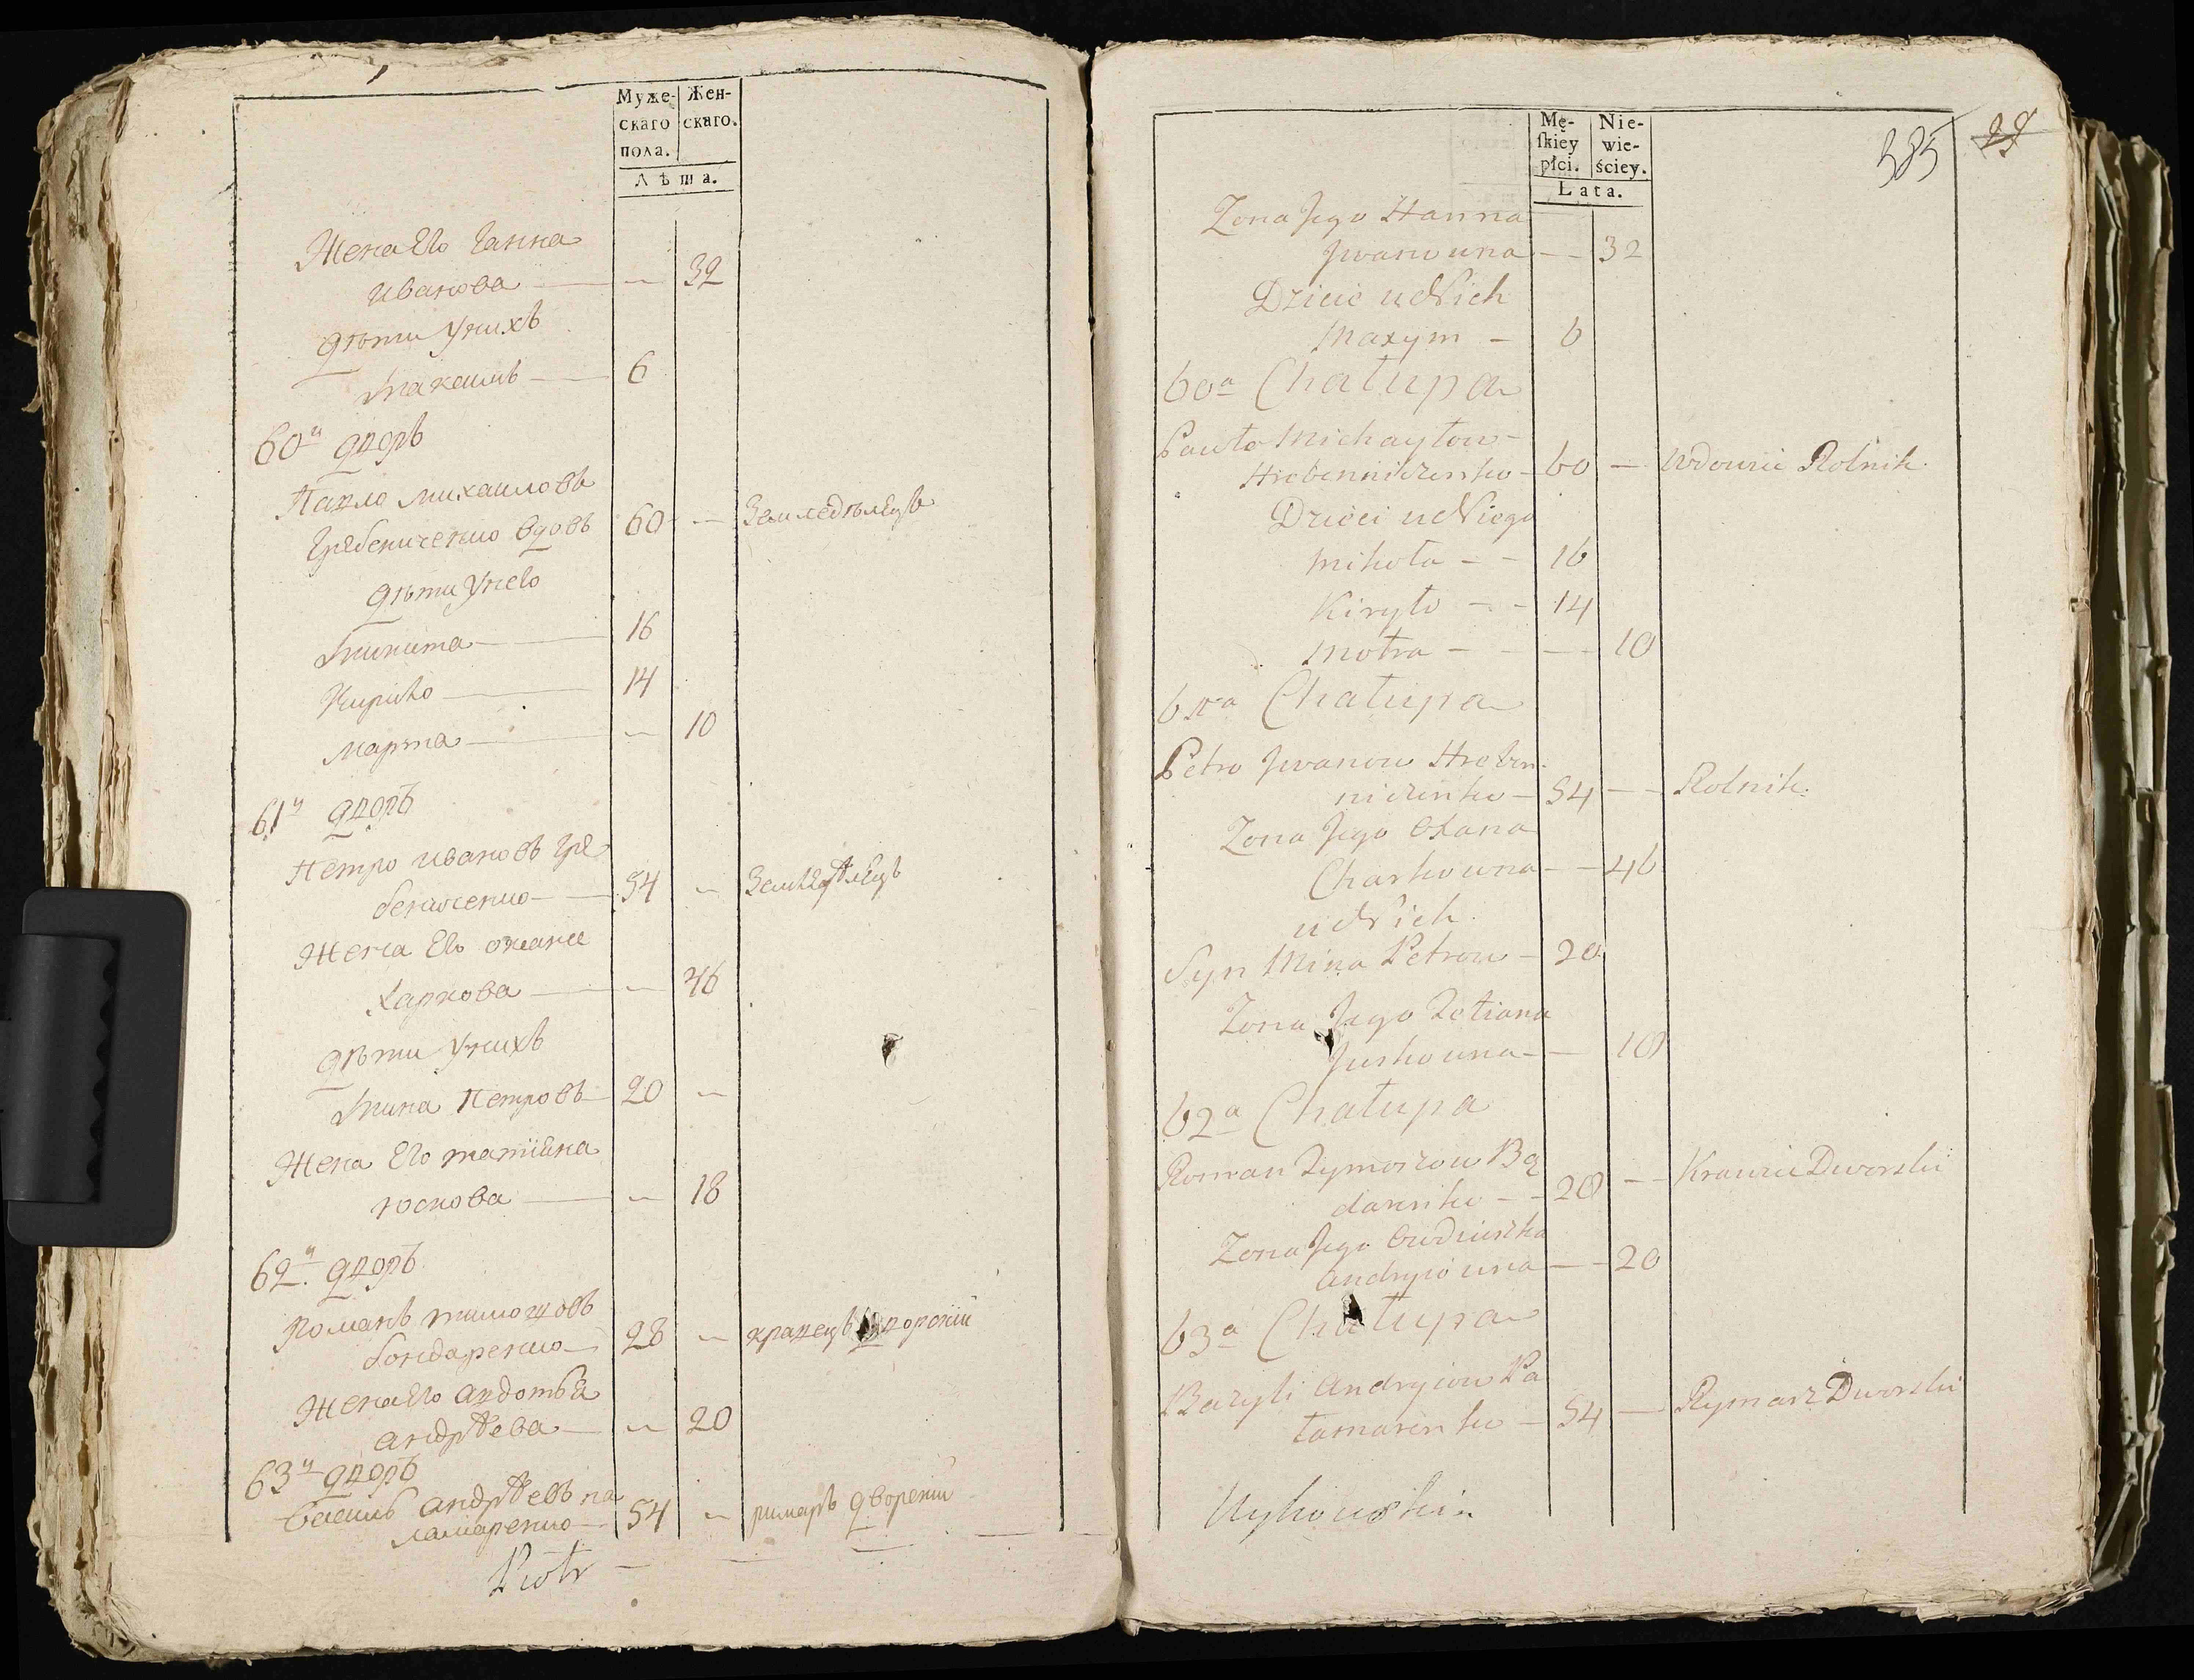 Муже- Жен-
скаго скаго.
пола.
Лѣта.
Жена Его Ганна
Иванова — — 32
дѣти Унихъ
Макаимъ — 6
60й дворъ
Павло михаиловъ
Гребениченко вдовъ 60 — Земледѣлецъ
дѣти Унего
Микита — 16
Кирило — 14
марта — — 10
61й дворъ
Петро ивановъ Гре
бениченко — 54 — Земледѣлецъ
Жена Его
харкова — — 46
дѣти Унихъ
Мина Петровъ — 20 —
Жена Его татияна
юскова — — 18
62й дворъ
Романъ тимошовъ
бондаренко — 28 — кравецъ дворскій
Жена Его авдотья
андрѣева — — 20
63й дворъ
василь андрѣевъ па
ламаренко — 54 — римаръ дворскій
Piotr —
Mę- Nie-
ſkiey wie-
płci. ściey.
Łata.
385 28
Zona Jego Hanna
Jwanowna — — 32
Dzieie u Nich
Maxym — 6
60a Chałupa
Pawło Michayłow
Hrebenniczenko — 60 — Wdowiec Rolnik.
Dzieci u Niego
Mikoła — — 16
Kiryło — — 14
Motra — — — 10
61sza Chałupa
Petro Jwanow Hreben-
niczenko — 54 — — Rolnik.
Zona Jego Oxana
Charkowna — — 46
u Nich.
Syn Mina Petrow — 20
Zona Jego Tetiana
Juskowna — — 18
62a Chałupa
Roman Tymoszow Bą
darenko — — 28 — — Krawiec Dworski
Zona Jego Owdiuszka
Andryiowna — — 20
63a Chałupa
Bazyli Andryiow Pa
łamarenko — 54 — Rymarz Dworski